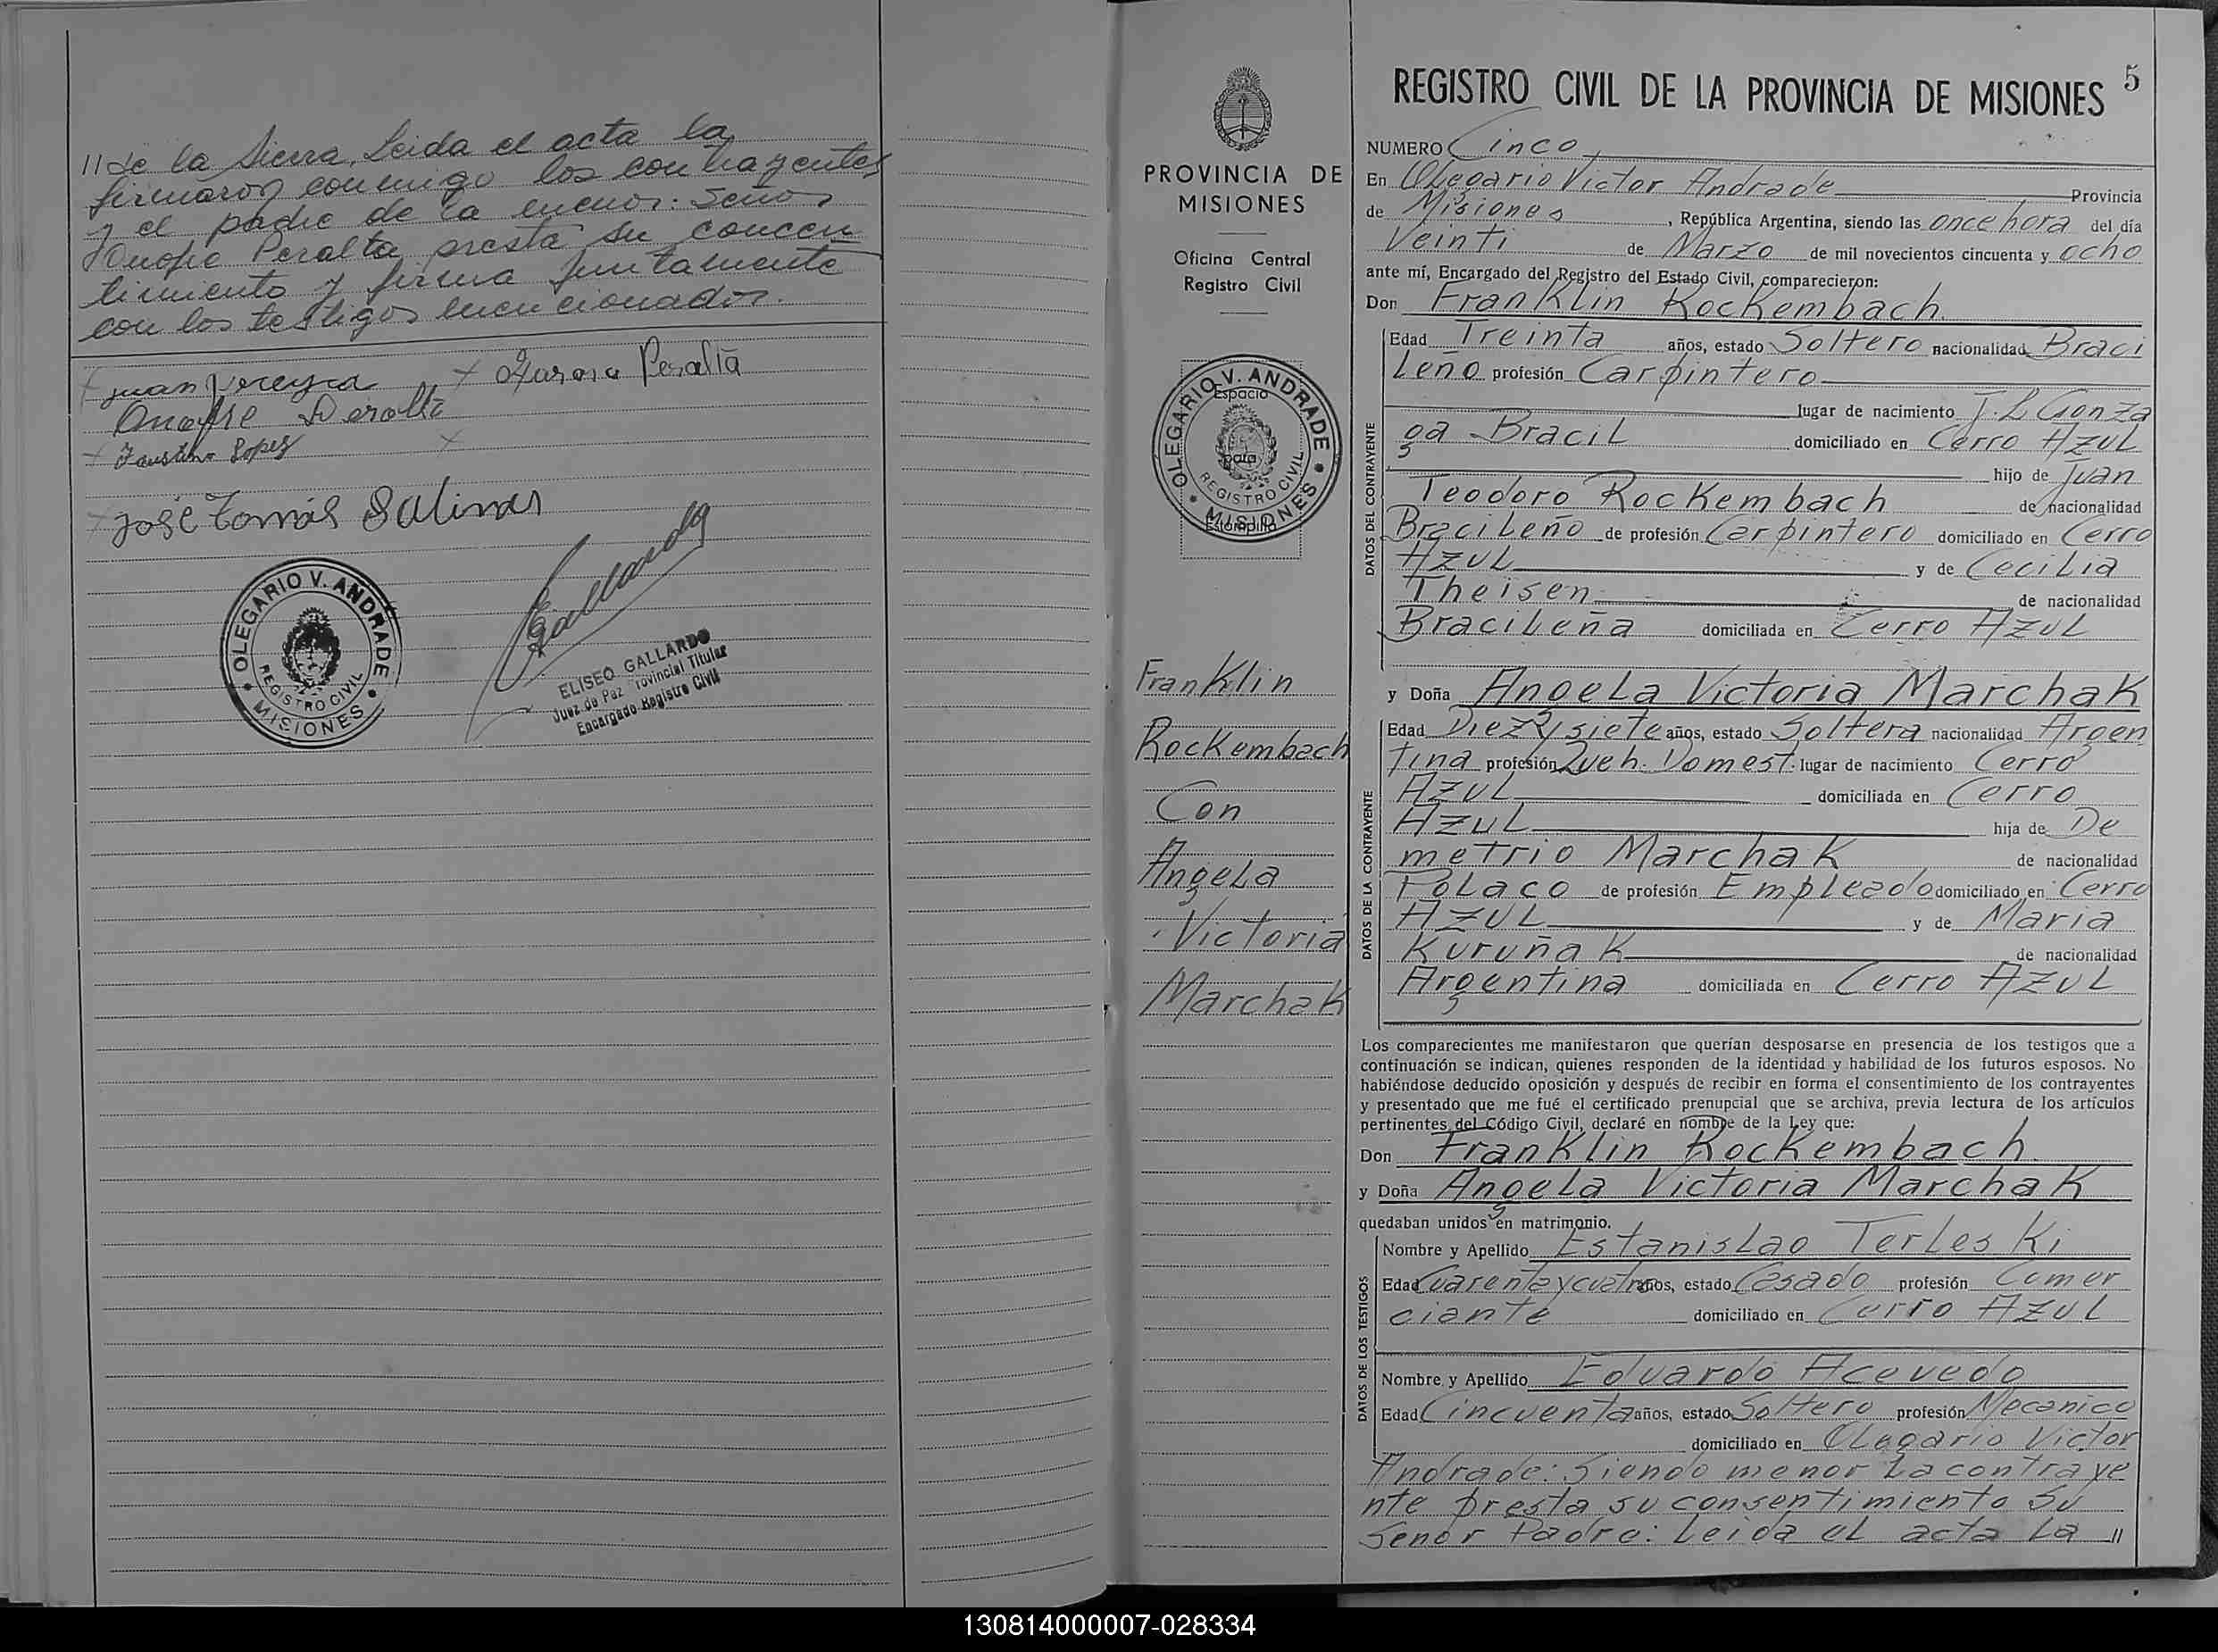 // de la Sierra. Leida el acta la
firmaron conmigo los contrayentes
y el padre de la menor: Señor
Onofre Peralta presta su concen
timiento y firma juntamente
con los testigos mencionados.
Juan Pereyra
Aurora Peralta
Onofre Peralta
Faustino Lopez
José Tomás Salinas
OLEGARIO V. ANDRADE
REGISTRO CIVIL
MISIONES
EGallardo
ELISEO GALLARDO
Juez de Paz rovincial Titular
Encargado Registro Civil
PROVINCIA DE
MISIONES
Oficina Central
Registro Civil
OLEGARIO V. ANDRADE
Espacio
para
REGISTRO CIVIL
MISIONES
Estampilla
Franklin
Rockembach
Con
Angela
Victoria
Marchak
5
REGISTRO CIVIL DE LA PROVINCIA DE MISIONES
NUMERO Cinco
En Olegario Victor Andrade Provincia
de Misiones, República Argentina, siendo las once hora del día
Veinti de Marzo de mil novecientos cincuenta y ocho
ante mí, Encargado del Registro del Estado Civil, comparecieron:
Don Franklin Rockembach.
DATOS DEL CONTRAYENTE
Edad Treinta años, estado Soltero nacionalidad Braci
leño profesión Carpintero
lugar de nacimiento J. L Gonza
ga Bracil domiciliado en Cerro Azul
hijo de Juan
Teodoro Rockembach de nacionalidad
Bracileño de profesión Carpintero domiciliado en Cerro
Azul y de Cecilia
Theisen de nacionalidad
Bracileña domiciliada en Cerro Azul
y Doña Angela Victoria Marchak
DATOS DE LA CONTRAYENTE
Edad Diez y siete años, estado Soltera nacionalidad Argen
tina profesión Queh. Domest. lugar de nacimiento Cerro
Azul domiciliada en Cerro
Azul hija de De
metrio Marchak de nacionalidad
Polaco de profesión Empleado domiciliado en Cerro
Azul y de Maria
Kuruñak de nacionalidad
Argentina domiciliada en Cerro Azul
Los comparecientes me manifestaron que querían desposarse en presencia de los testigos que a
continuación se indican, quienes responden de la identidad y habilidad de los futuros esposos. No
habiéndose deducido oposición y después de recibir en forma el consentimiento de los contrayentes
y presentado que me fué el certificado prenupcial que se archiva, previa lectura de los artículos
pertinentes del Código Civil, declaré en nombre de la Ley que:
Don Franklin Rockembach.
y Doña Angela Victoria Marchak
quedaban unidos en matrimonio.
DATOS DE LOS TESTIGOS
Nombre y Apellido Estanislao Terleski
Edad Cuarenta y cuatro años, estado Casado profesión Comer
ciante domiciliado en Cerro Azul
Nombre y Apellido Eduardo Acevedo
Edad Cincuenta años, estado Soltero profesión Mecanico
domiciliado en Olegario Victor
Andrade: Siendo menor la contraye
nte presta su consentimiento Su
Senor Padre: Leida el acta la //
130814000007-028334